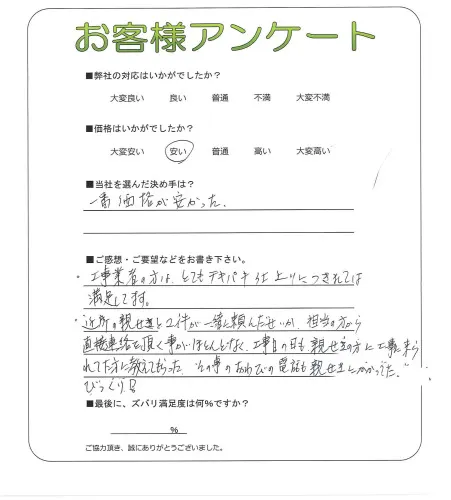 お客様アンケート
■弊社の対応はいかがでしたか？
大変良い 良い 普通 不満 大変不満
■価格はいかがでしたか？
大変安い 安い 普通 高い 大変高い
■当社を選んだ決め手は？
一番価格が安かった。
■ご感想・ご要望などをお書き下さい。
・工事業者の方は、とてもテキパキ 仕上りにつきましては
満足してます。
・近所の親せきと2件が一緒に頼んだせいか、担当の方から
直接連絡を頂く事がほとんどなく、工事の日も親せきの方に工事に来ら
れてた方に教えてもらった。その事のおわびの電話も親せきにかかってた。
びっくり!!
■最後に、ズバリ満足度は何%ですか？
%
ご協力頂き、誠にありがとうございました。